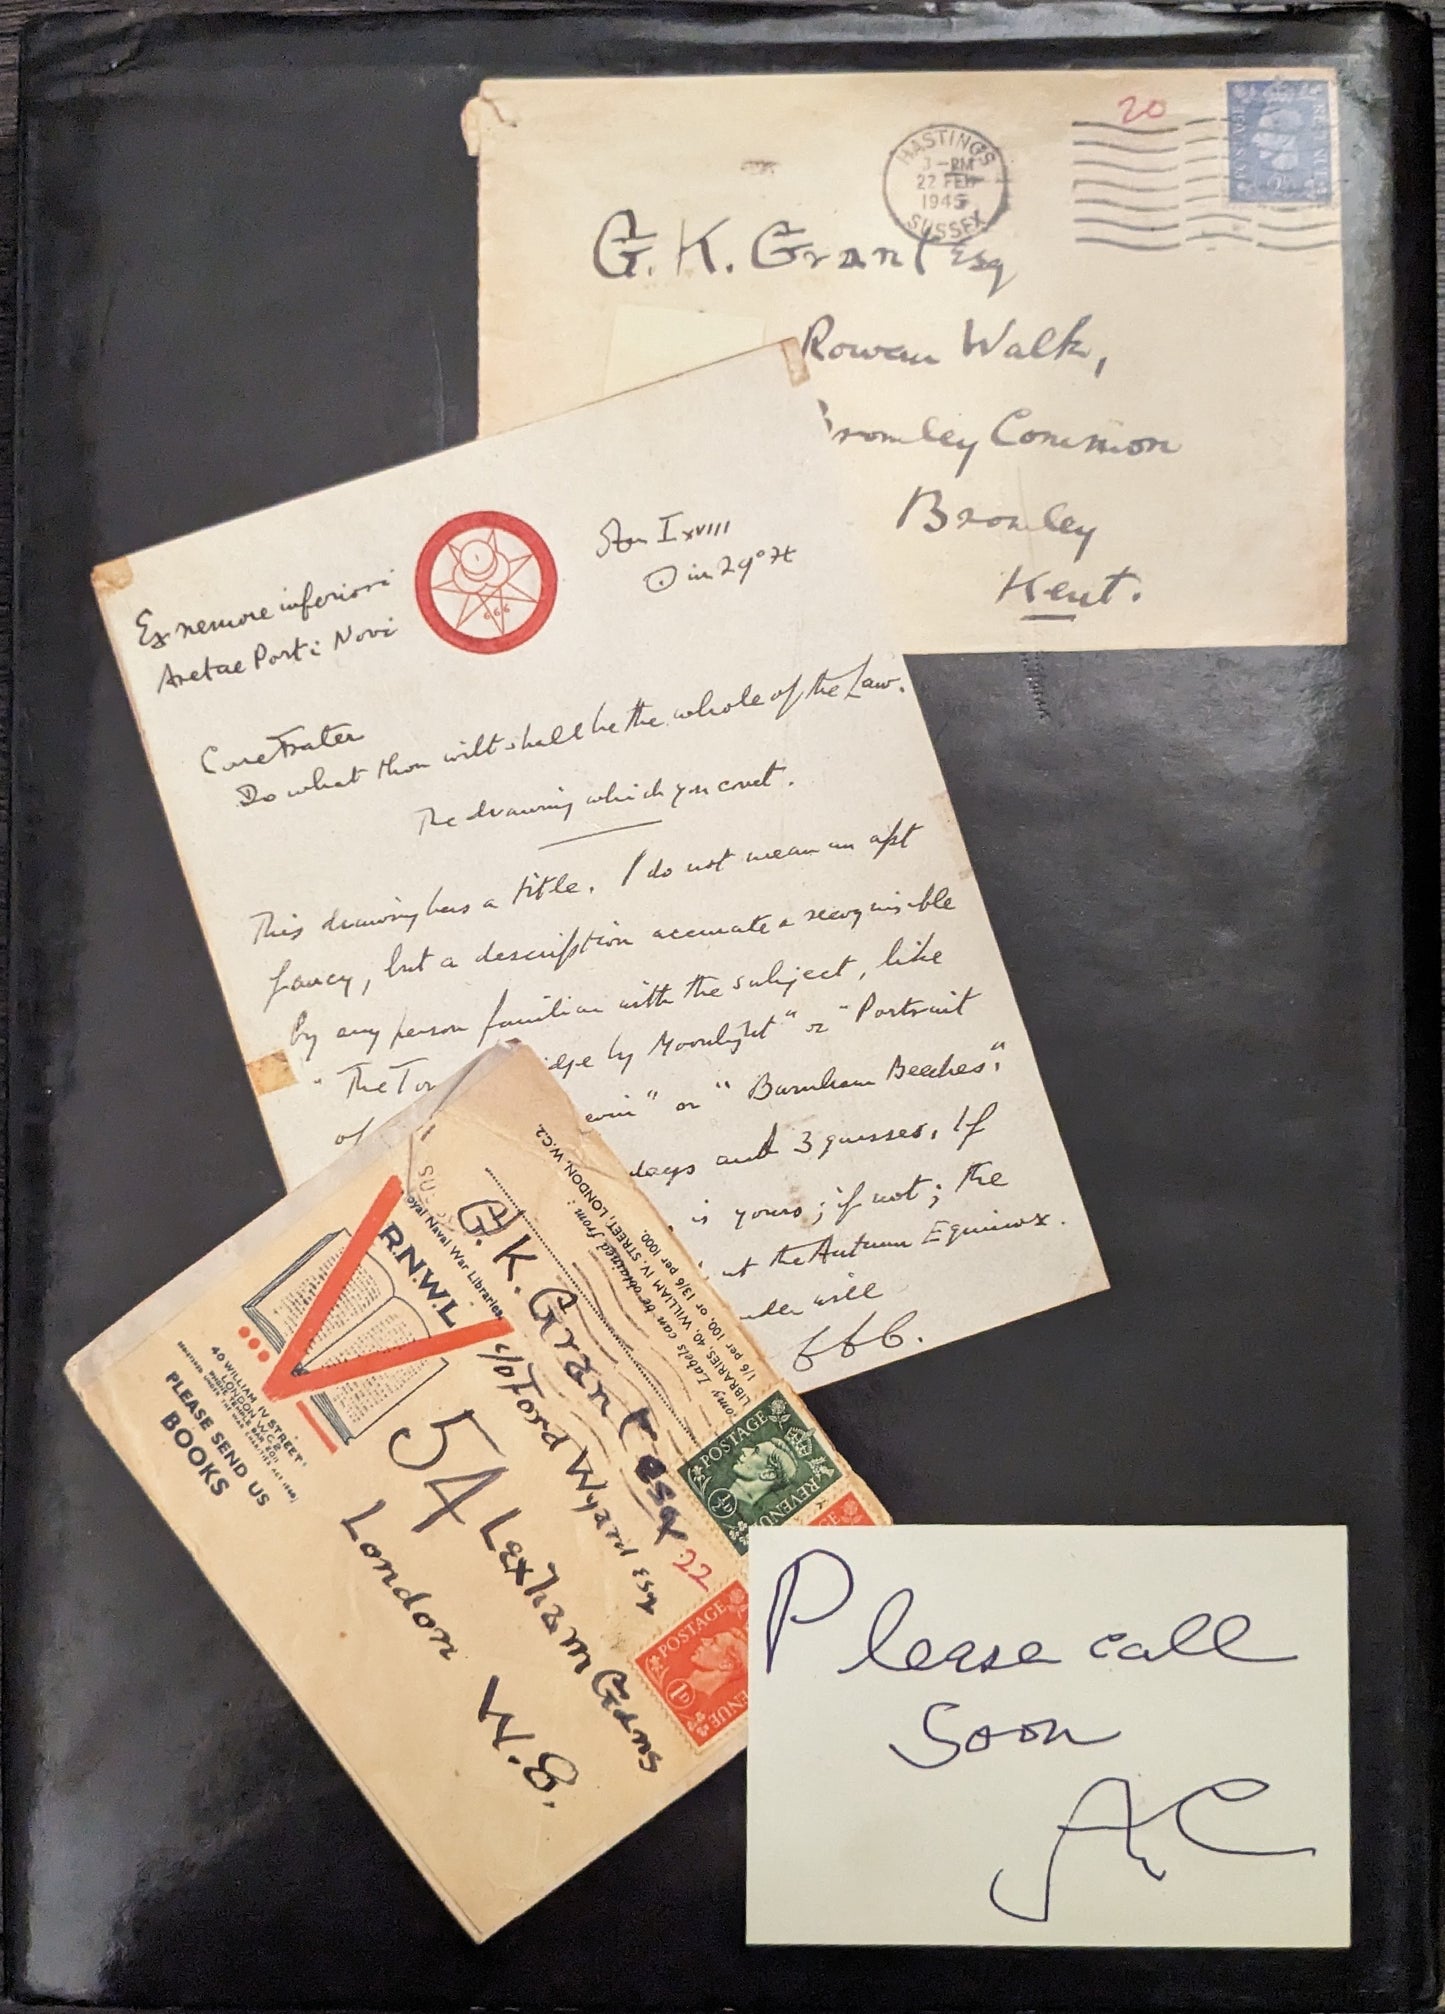 20
HASTINGS
3-PM
22 FEB
1945
SUSSEX
POSTAGE
REVENUE
G. K. Grant Esq
Rowan Walk,
Bromley Common
Bromley
Kent.
Ex nemore inferiori
Aretae Porti Novi
666
An I xviii
☉ in 29° ♓
Care Frater
Do what thou wilt shall be the whole of the Law.
The drawing which you covet.
This drawing has a title. I do not mean an apt
fancy, but a description accurate & recognisible
by any person familiar with the subject, like
"The Tow idge by Moonlight" or "Portrait
of evin" or "Burnham Beeches."
days and 3 guesses. If
is yours; if not; the
at the Autumn Equinox.
under will
666.
R.N.W.L
Royal Naval War Libraries.
40 WILLIAM IV STREET
LONDON WC2
PHONE TEMPLE BAR
REGISTERED UNDER THE WAR CHARITIES ACT 1940
PLEASE SEND US
BOOKS
omy Labels can be obtained from:
LIBRARIES, 40, WILLIAM IV. STREET, LONDON, W.C.2.
1/6 per 100, or 13/6 per 1000.
G. K. Grant esq
c/o Ford Wyard Esq
54 Lexham Gdns
London W.8.
22
POSTAGE
½D
REVENUE
POSTAGE
1D
REVENUE
Please call
soon
AC